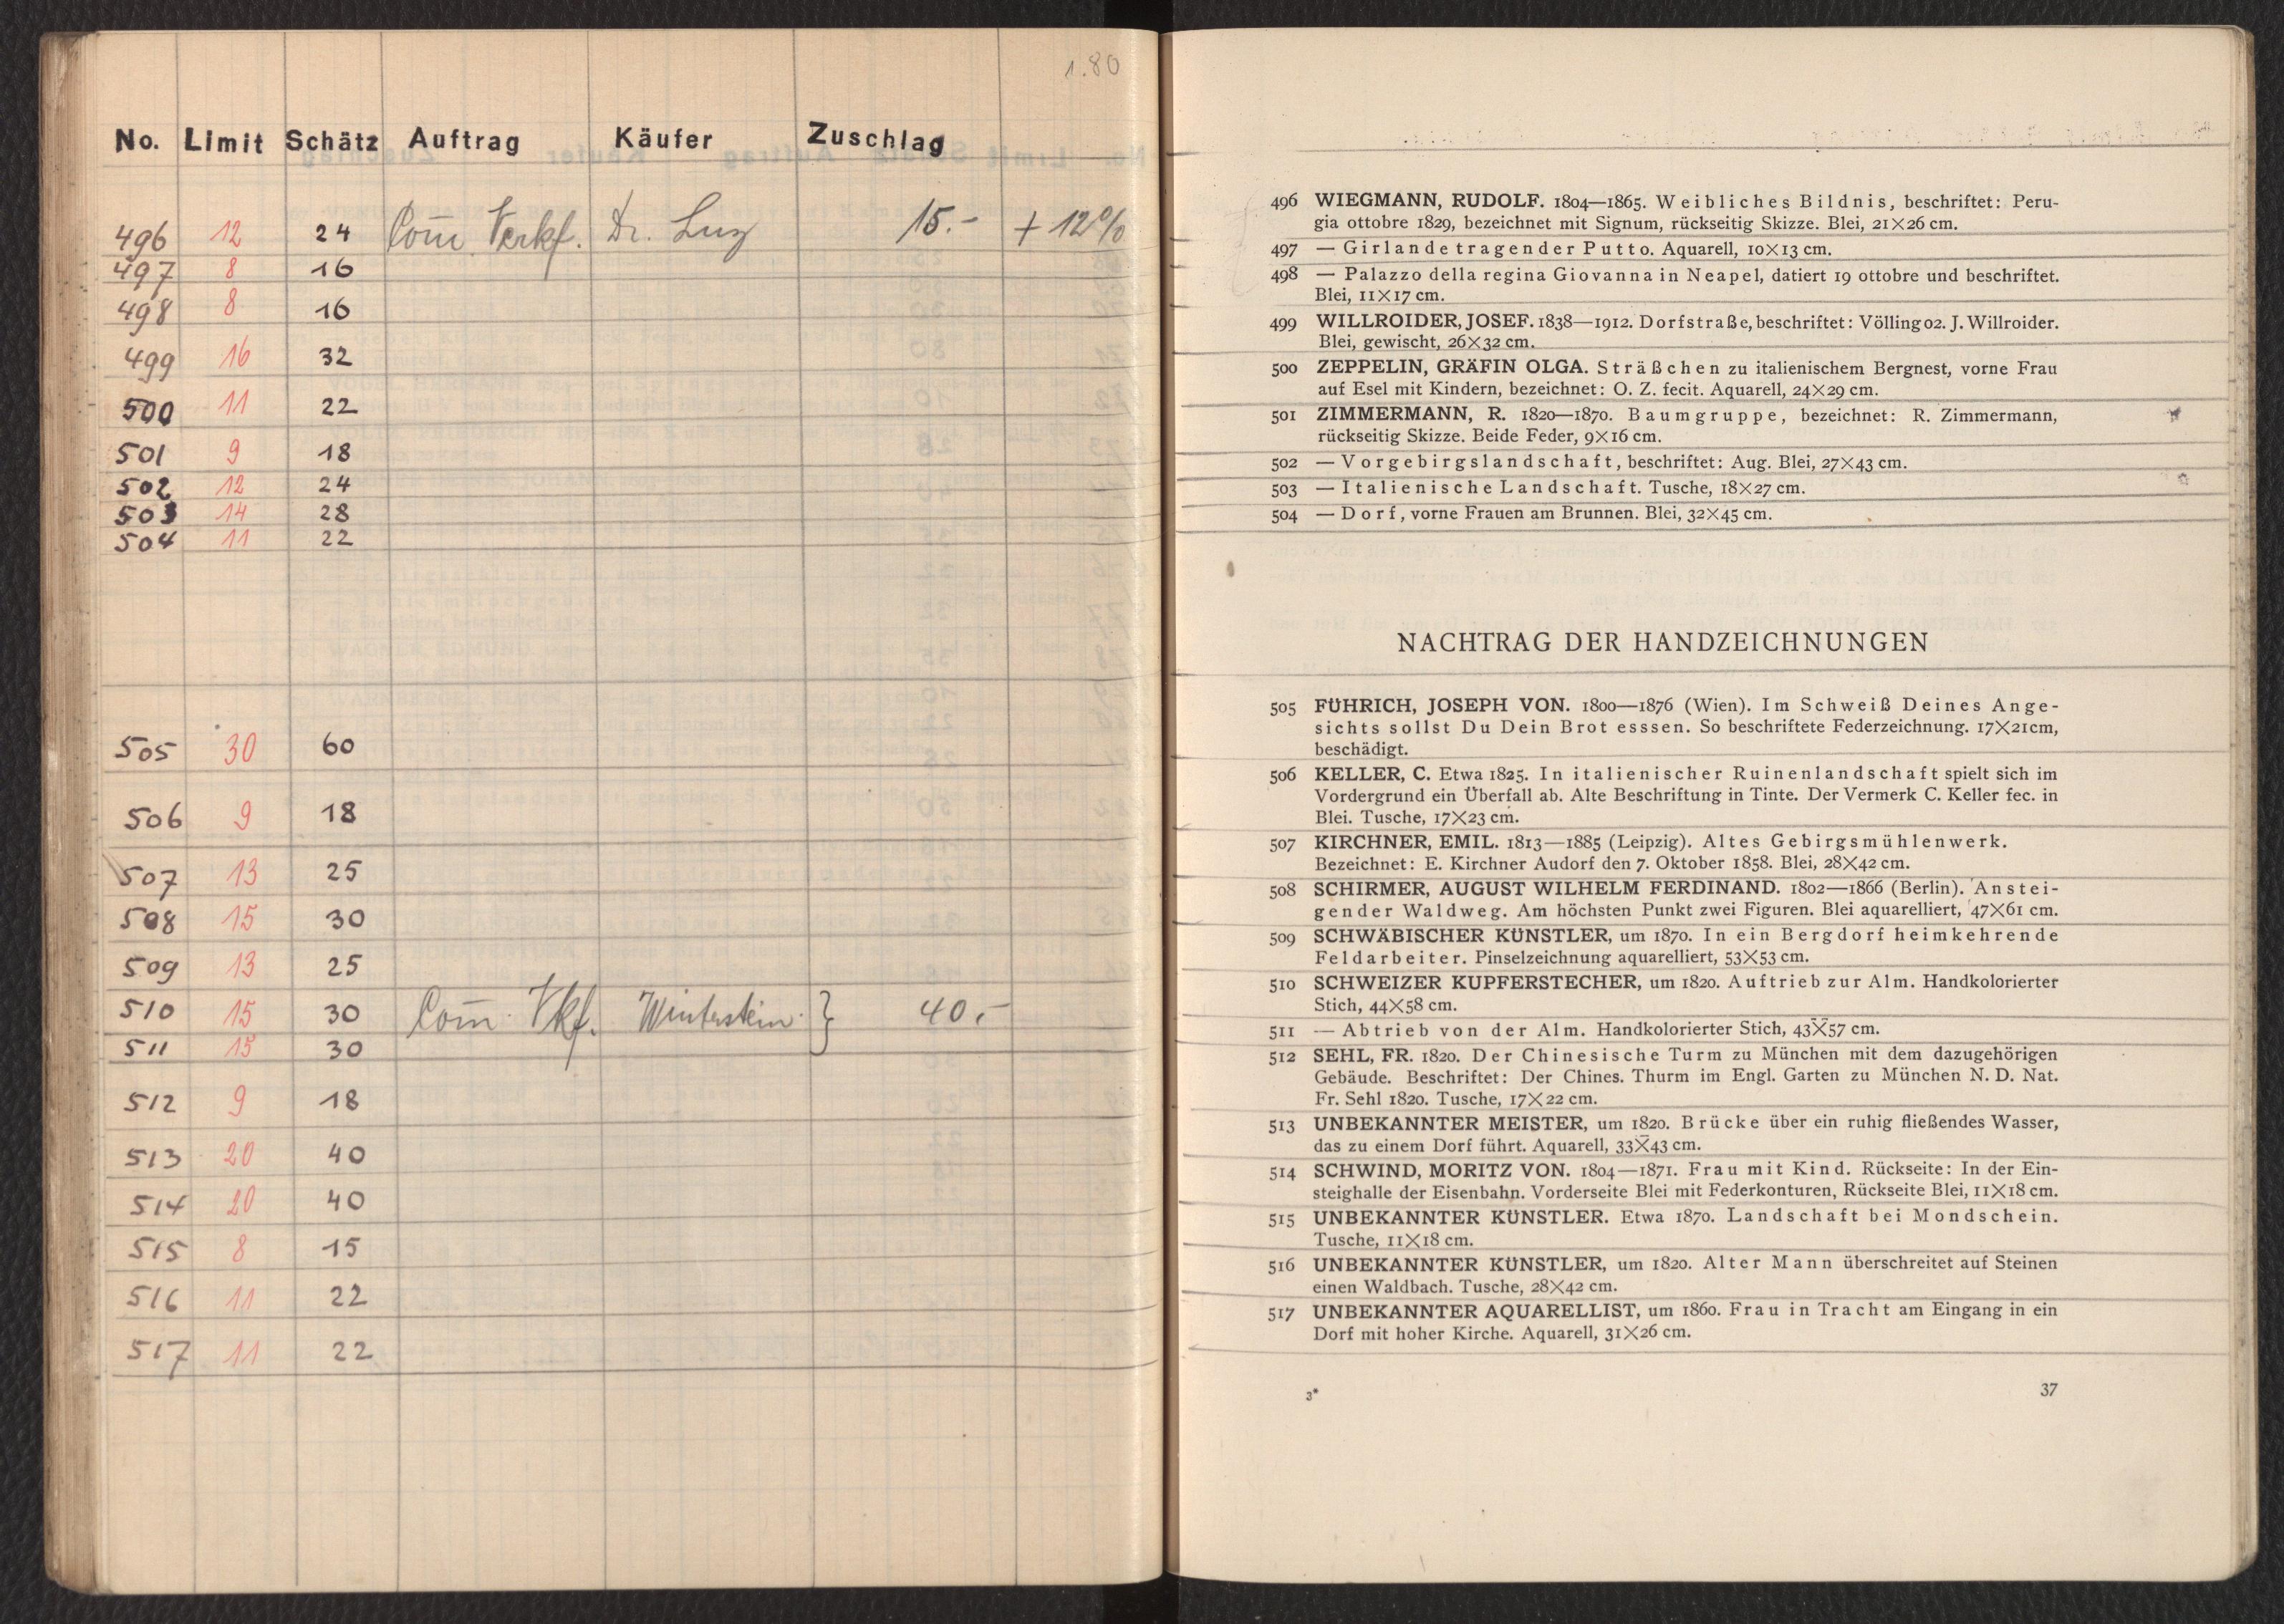 1.80
No. Limit Schätz Auftrag Käufer Zuschlag
496 12 24 Com̄. Verkf. Dr. Luz 15.- + 12%
497 8 16
498 8 16
499 16 32
500 11 22
501 9 18
502 12 24
503 14 28
504 11 22
505 30 60
506 9 18
507 13 25
508 15 30
509 13 25
510 15 30 Com̄. Vkf. Winterstein } 40.-
511 15 30
512 9 18
513 20 40
514 20 40
515 8 15
516 11 22
517 11 22
496 WIEGMANN, RUDOLF. 1804—1865. Weibliches Bildnis, beschriftet: Peru-
gia ottobre 1829, bezeichnet mit Signum, rückseitig Skizze. Blei, 21×26 cm.
497 — Girlande tragender Putto. Aquarell, 10×13 cm.
498 — Palazzo della regina Giovanna in Neapel, datiert 19 ottobre und beschriftet.
Blei, 11×17 cm.
499 WILLROIDER, JOSEF. 1838—1912. Dorfstraße, beschriftet: Völling 02. J. Willroider.
Blei, gewischt, 26×32 cm.
500 ZEPPELIN, GRÄFIN OLGA. Sträßchen zu italienischem Bergnest, vorne Frau
auf Esel mit Kindern, bezeichnet: O. Z. fecit. Aquarell, 24×29 cm.
501 ZIMMERMANN, R. 1820—1870. Baumgruppe, bezeichnet: R. Zimmermann,
rückseitig Skizze. Beide Feder, 9×16 cm.
502 — Vorgebirgslandschaft, beschriftet: Aug. Blei, 27×43 cm.
503 — Italienische Landschaft. Tusche, 18×27 cm.
504 — Dorf, vorne Frauen am Brunnen. Blei, 32×45 cm.
NACHTRAG DER HANDZEICHNUNGEN
505 FÜHRICH, JOSEPH VON. 1800—1876 (Wien). Im Schweiß Deines Ange-
sichts sollst Du Dein Brot esssen. So beschriftete Federzeichnung. 17×21cm,
beschädigt.
506 KELLER, C. Etwa 1825. In italienischer Ruinenlandschaft spielt sich im
Vordergrund ein Überfall ab. Alte Beschriftung in Tinte. Der Vermerk C. Keller fec. in
Blei. Tusche, 17×23 cm.
507 KIRCHNER, EMIL. 1813—1885 (Leipzig). Altes Gebirgsmühlenwerk.
Bezeichnet: E. Kirchner Audorf den 7. Oktober 1858. Blei, 28×42 cm.
508 SCHIRMER, AUGUST WILHELM FERDINAND. 1802—1866 (Berlin). Anstei-
gender Waldweg. Am höchsten Punkt zwei Figuren. Blei aquarelliert, 47×61 cm.
509 SCHWÄBISCHER KÜNSTLER, um 1870. In ein Bergdorf heimkehrende
Feldarbeiter. Pinselzeichnung aquarelliert, 53×53 cm.
510 SCHWEIZER KUPFERSTECHER, um 1820. Auftrieb zur Alm. Handkolorierter
Stich, 44×58 cm.
511 — Abtrieb von der Alm. Handkolorierter Stich, 43×57 cm.
512 SEHL, FR. 1820. Der Chinesische Turm zu München mit dem dazugehörigen
Gebäude. Beschriftet: Der Chines. Thurm im Engl. Garten zu München N. D. Nat.
Fr. Sehl 1820. Tusche, 17×22 cm.
513 UNBEKANNTER MEISTER, um 1820. Brücke über ein ruhig fließendes Wasser,
das zu einem Dorf führt. Aquarell, 33×43 cm.
514 SCHWIND, MORITZ VON. 1804—1871. Frau mit Kind. Rückseite: In der Ein-
steighalle der Eisenbahn. Vorderseite Blei mit Federkonturen, Rückseite Blei, 11×18 cm.
515 UNBEKANNTER KÜNSTLER. Etwa 1870. Landschaft bei Mondschein.
Tusche, 11×18 cm.
516 UNBEKANNTER KÜNSTLER, um 1820. Alter Mann überschreitet auf Steinen
einen Waldbach. Tusche, 28×42 cm.
517 UNBEKANNTER AQUARELLIST, um 1860. Frau in Tracht am Eingang in ein
Dorf mit hoher Kirche. Aquarell, 31×26 cm.
3*
37